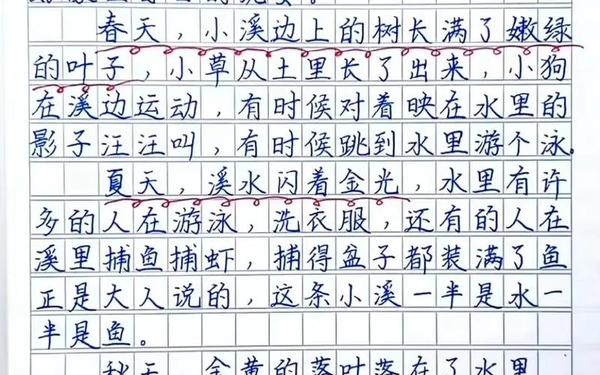 春天，小溪边上的树长满了嫩绿
的叶子，小草从土里长了出来，小狗
在溪边运动，有时候对着映在水里的
影子汪汪叫，有时候跳到水里游个泳。
夏天，溪水闪着金光，水里有许
多的人在游泳，洗衣服，还有的人在
溪里捕鱼捕虾，捕得盆子都装满了鱼
正是大人说的，这条小溪一半是水一
半是鱼。
秋天，金黄的落叶落在了水里